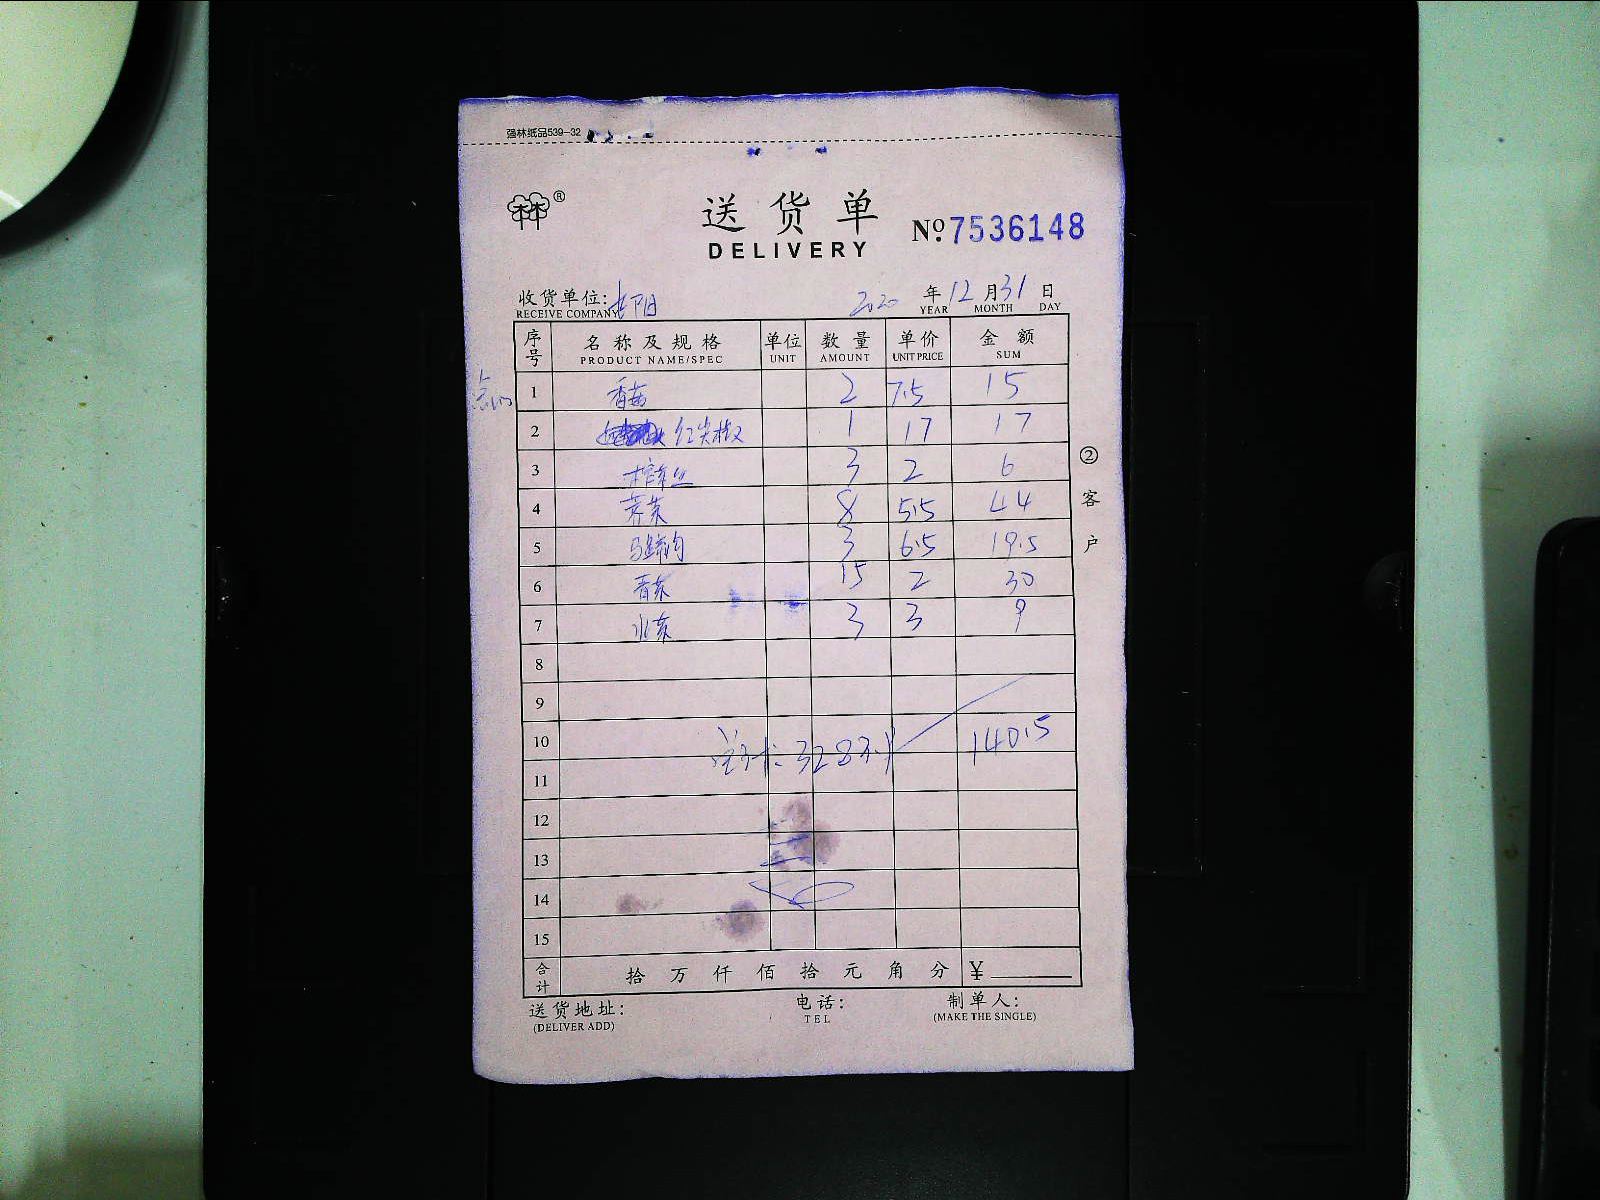 强林纸品539-32
林®
送货单
DELIVERY
Nº.7536148
收货单位:
RECEIVE COMPANY
2020 年 12 月 31 日
YEAR MONTH DAY
序号 名称及规格 单位 数量 单价 金额
PRODUCT NAME/SPEC UNIT AMOUNT UNIT PRICE SUM
1 香菇 2 7.5 15
2 红尖椒 1 17 17
3 榨菜丝 3 2 6
4 荠菜 8 5.5 44
5 马蹄肉 3 6.5 19.5
6 3 15 2 30
7 3 3 9
8
9
10 140.5
11
12
13
14
15
合计 拾 万 仟 佰 拾 元 角 分 ¥
送货地址: 电话: 制单人:
(DELIVER ADD) TEL (MAKE THE SINGLE)
②客户